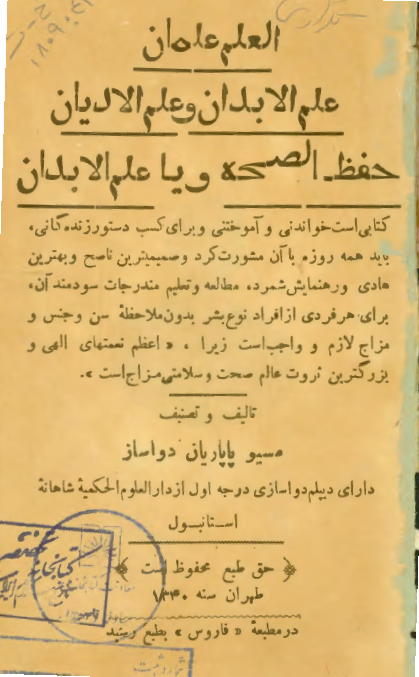 العلم علمان
علم الابدان وعلم الادیان
حفظ الصحه ویا علم الابدان
کتابی است خواندنی و آموختنی وبرای کسب دستور زنده گانی،
باید همه روزه با آن مشورت کرد وصمیمیترین ناصح وبهترین
هادی ورهنمایش شمرد، مطالعه وتعلیم مندرجات سودمند آن،
برای هرفردی از افراد نوع بشر بدون ملاحظهٔ سن وجنس و
مزاج لازم و واجب است زیرا، «اعظم نعمتهای الهی و
بزرگترین ثروت عالم صحت وسلامتی مزاج است».
تالیف و تصنیف
مسیو پاپاریان دواساز
دارای دیپلم دواسازی درجه اول از دارالعلوم الحکمیهٔ شاهانهٔ
استانبول
حق طبع محفوظ است
طهران سنه ۱۳۴۰
در مطبعهٔ «فاروس» بطبع رسید